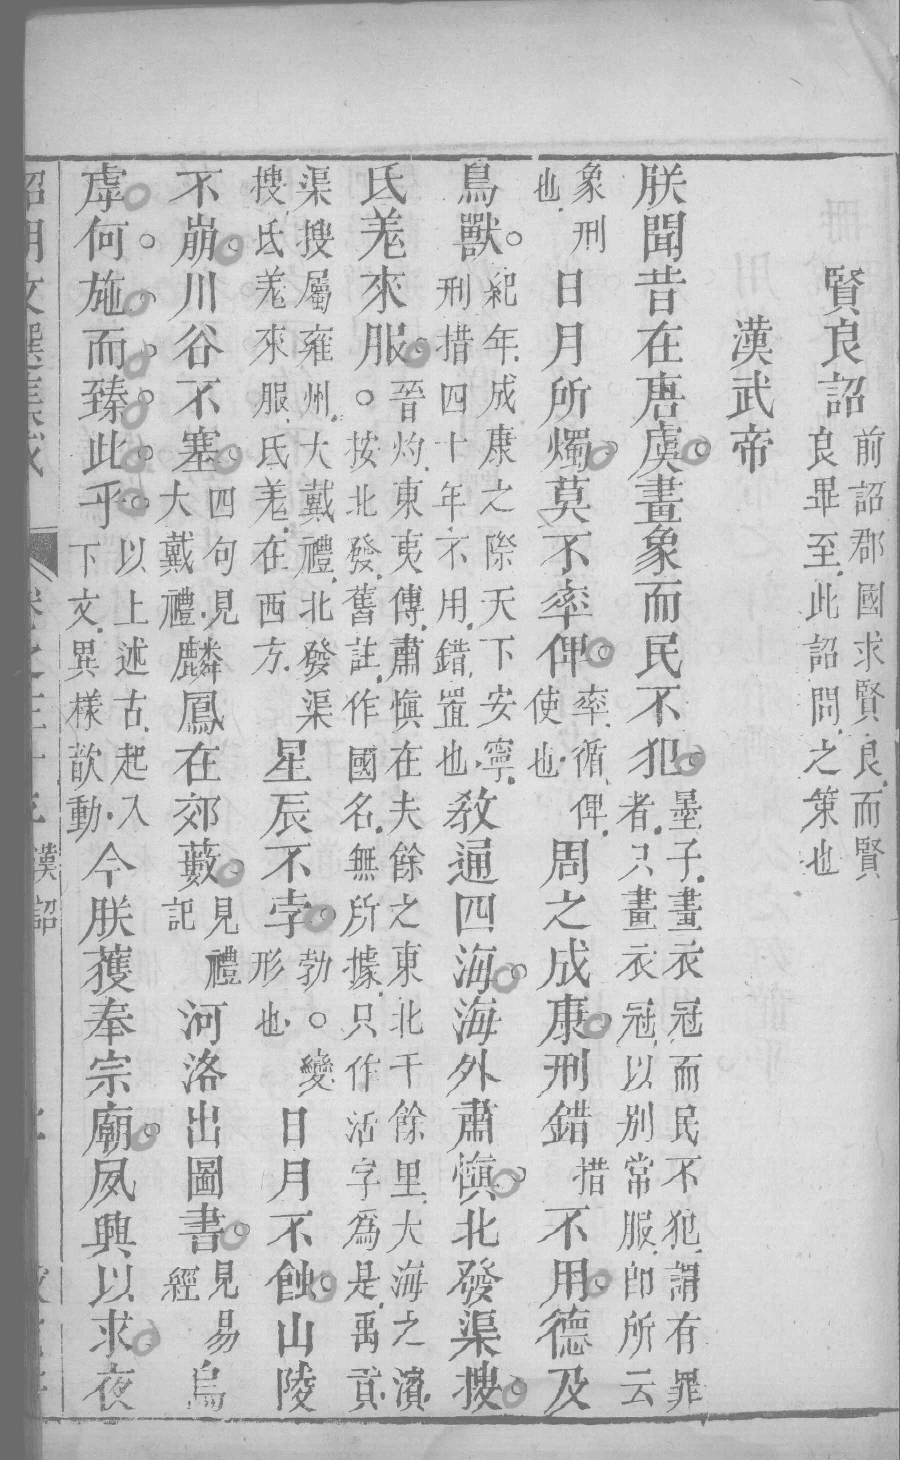 賢良詔前詔郡國求賢良而賢良畢至此詔問之策也
漢武帝
朕聞昔在唐虞畫象而民不犯墨子畫衣冠而民不犯謂有罪者只畫衣冠以別常服即所云
象刑也日月所燭莫不率俾率循俾使也周之成康刑錯措不用德及
鳥獸紀年成康之際天下安寧刑措四十年不用錯置也教通四海海外肅慎北發渠搜
氐羗來服晉灼東夷傳肅慎在夫餘之東北千餘里大海之濱按北發舊註作國名無所據只作活字為是禹貢
渠搜屬雍州大戴禮北發渠搜氐羗來服氐羗在西方星辰不孛勃變形也日月不蝕山陵
不崩川谷不塞四句見大戴禮麟鳳在郊藪見禮記河洛出圖書見易經烏
虖何施而臻此乎以上述古起入下文異樣歆動今朕獲奉宗廟夙興以求夜